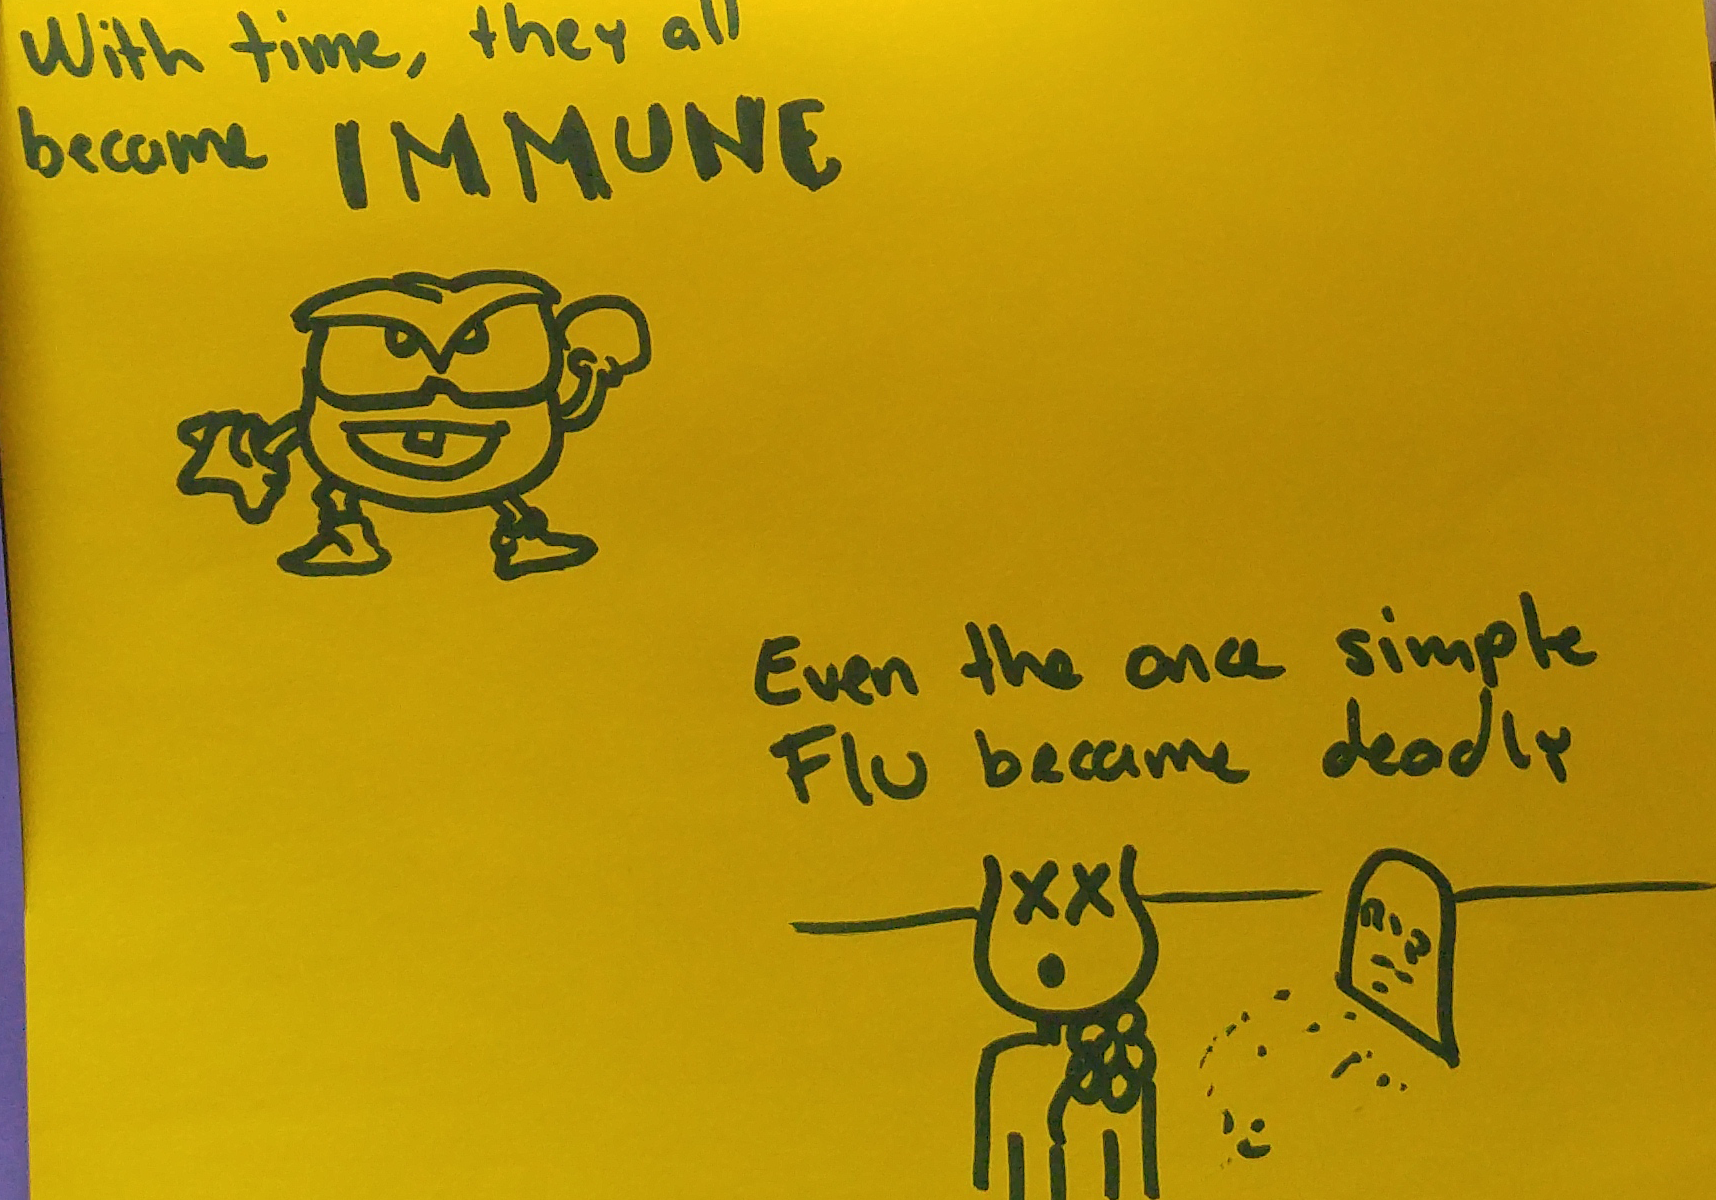 With time, they all
became IMMUNE
Even the once simple
Flu became deadly
R.I.P